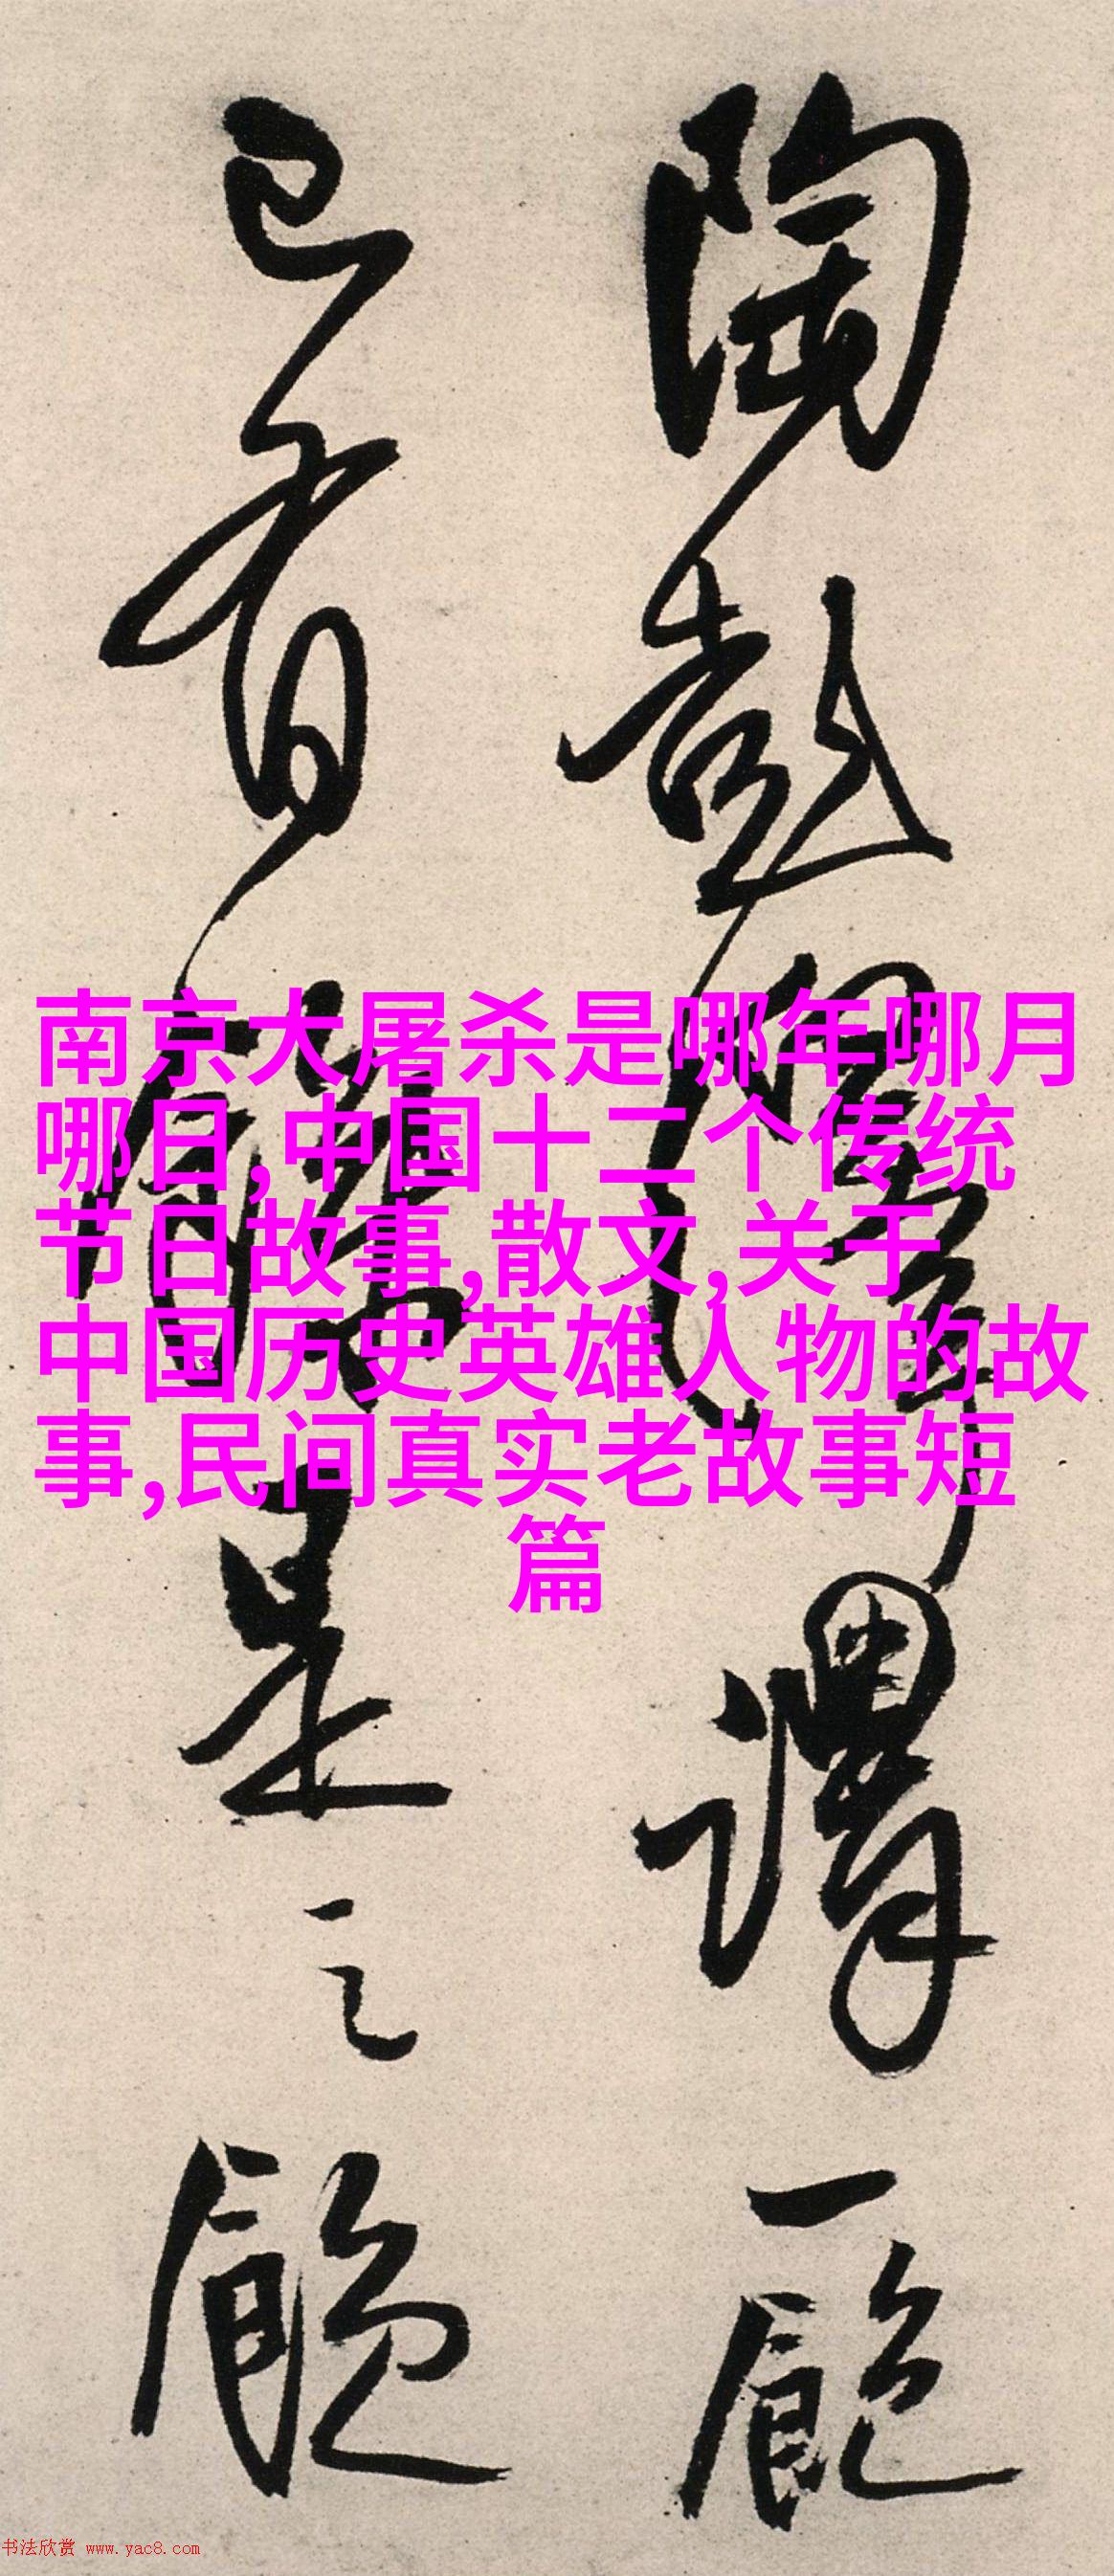 陶彭澤謂一飽
已有餘是之飽
南京大屠杀是哪年哪月
哪日,中国十二个传统
节日故事,散文,关于
中国历史英雄人物的故
事,民间真实老故事短
篇
书法欣赏 www.yac8.com